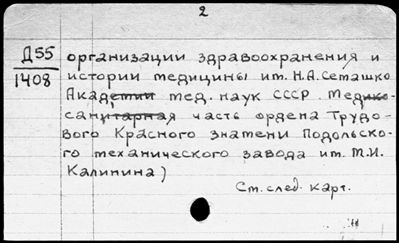 2
Д55 организации здравоохранения и
1408 истории медицины им. Н.А. Семашко
Академии мед. наук СССР. Медико-
санитарная часть ордена Трудо-
вого Красного знамени Подольско-
го механического завода им. М.И.
Калинина)
См. след. карт.